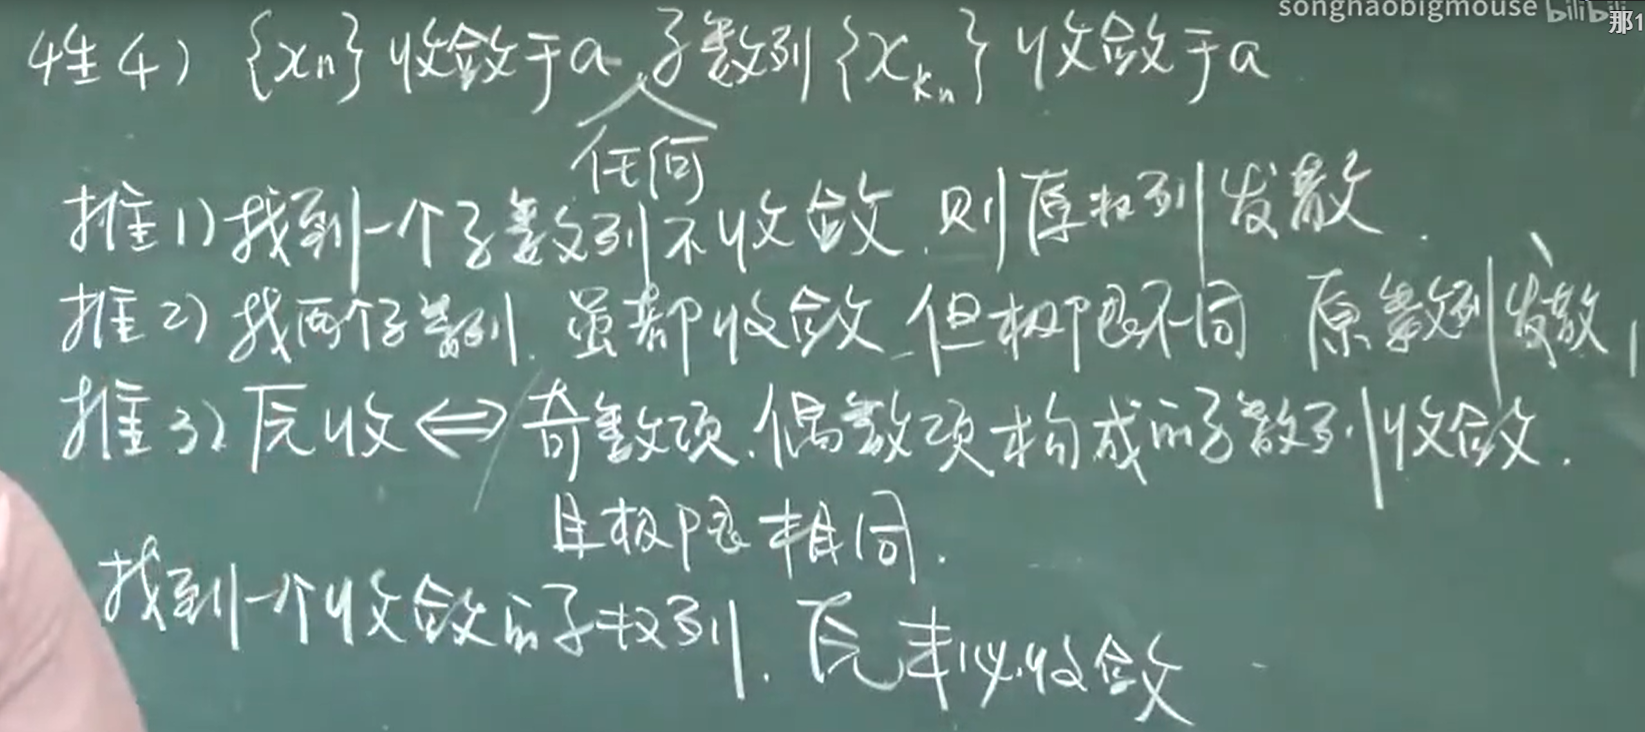 songhaobigmouse bilibili
那1
性4) {xn} 收敛于a, 任何子数列{x_kn} 收敛于a
推1) 找到一个子数列不收敛, 则原数列发散.
推2) 找两个子数列, 虽都收敛, 但极限不同 原数列发散,
推3) 原收⇔奇数项、偶数项构成的子数列收敛.
且极限相同.
找到一个收敛的子数列, 原未必收敛